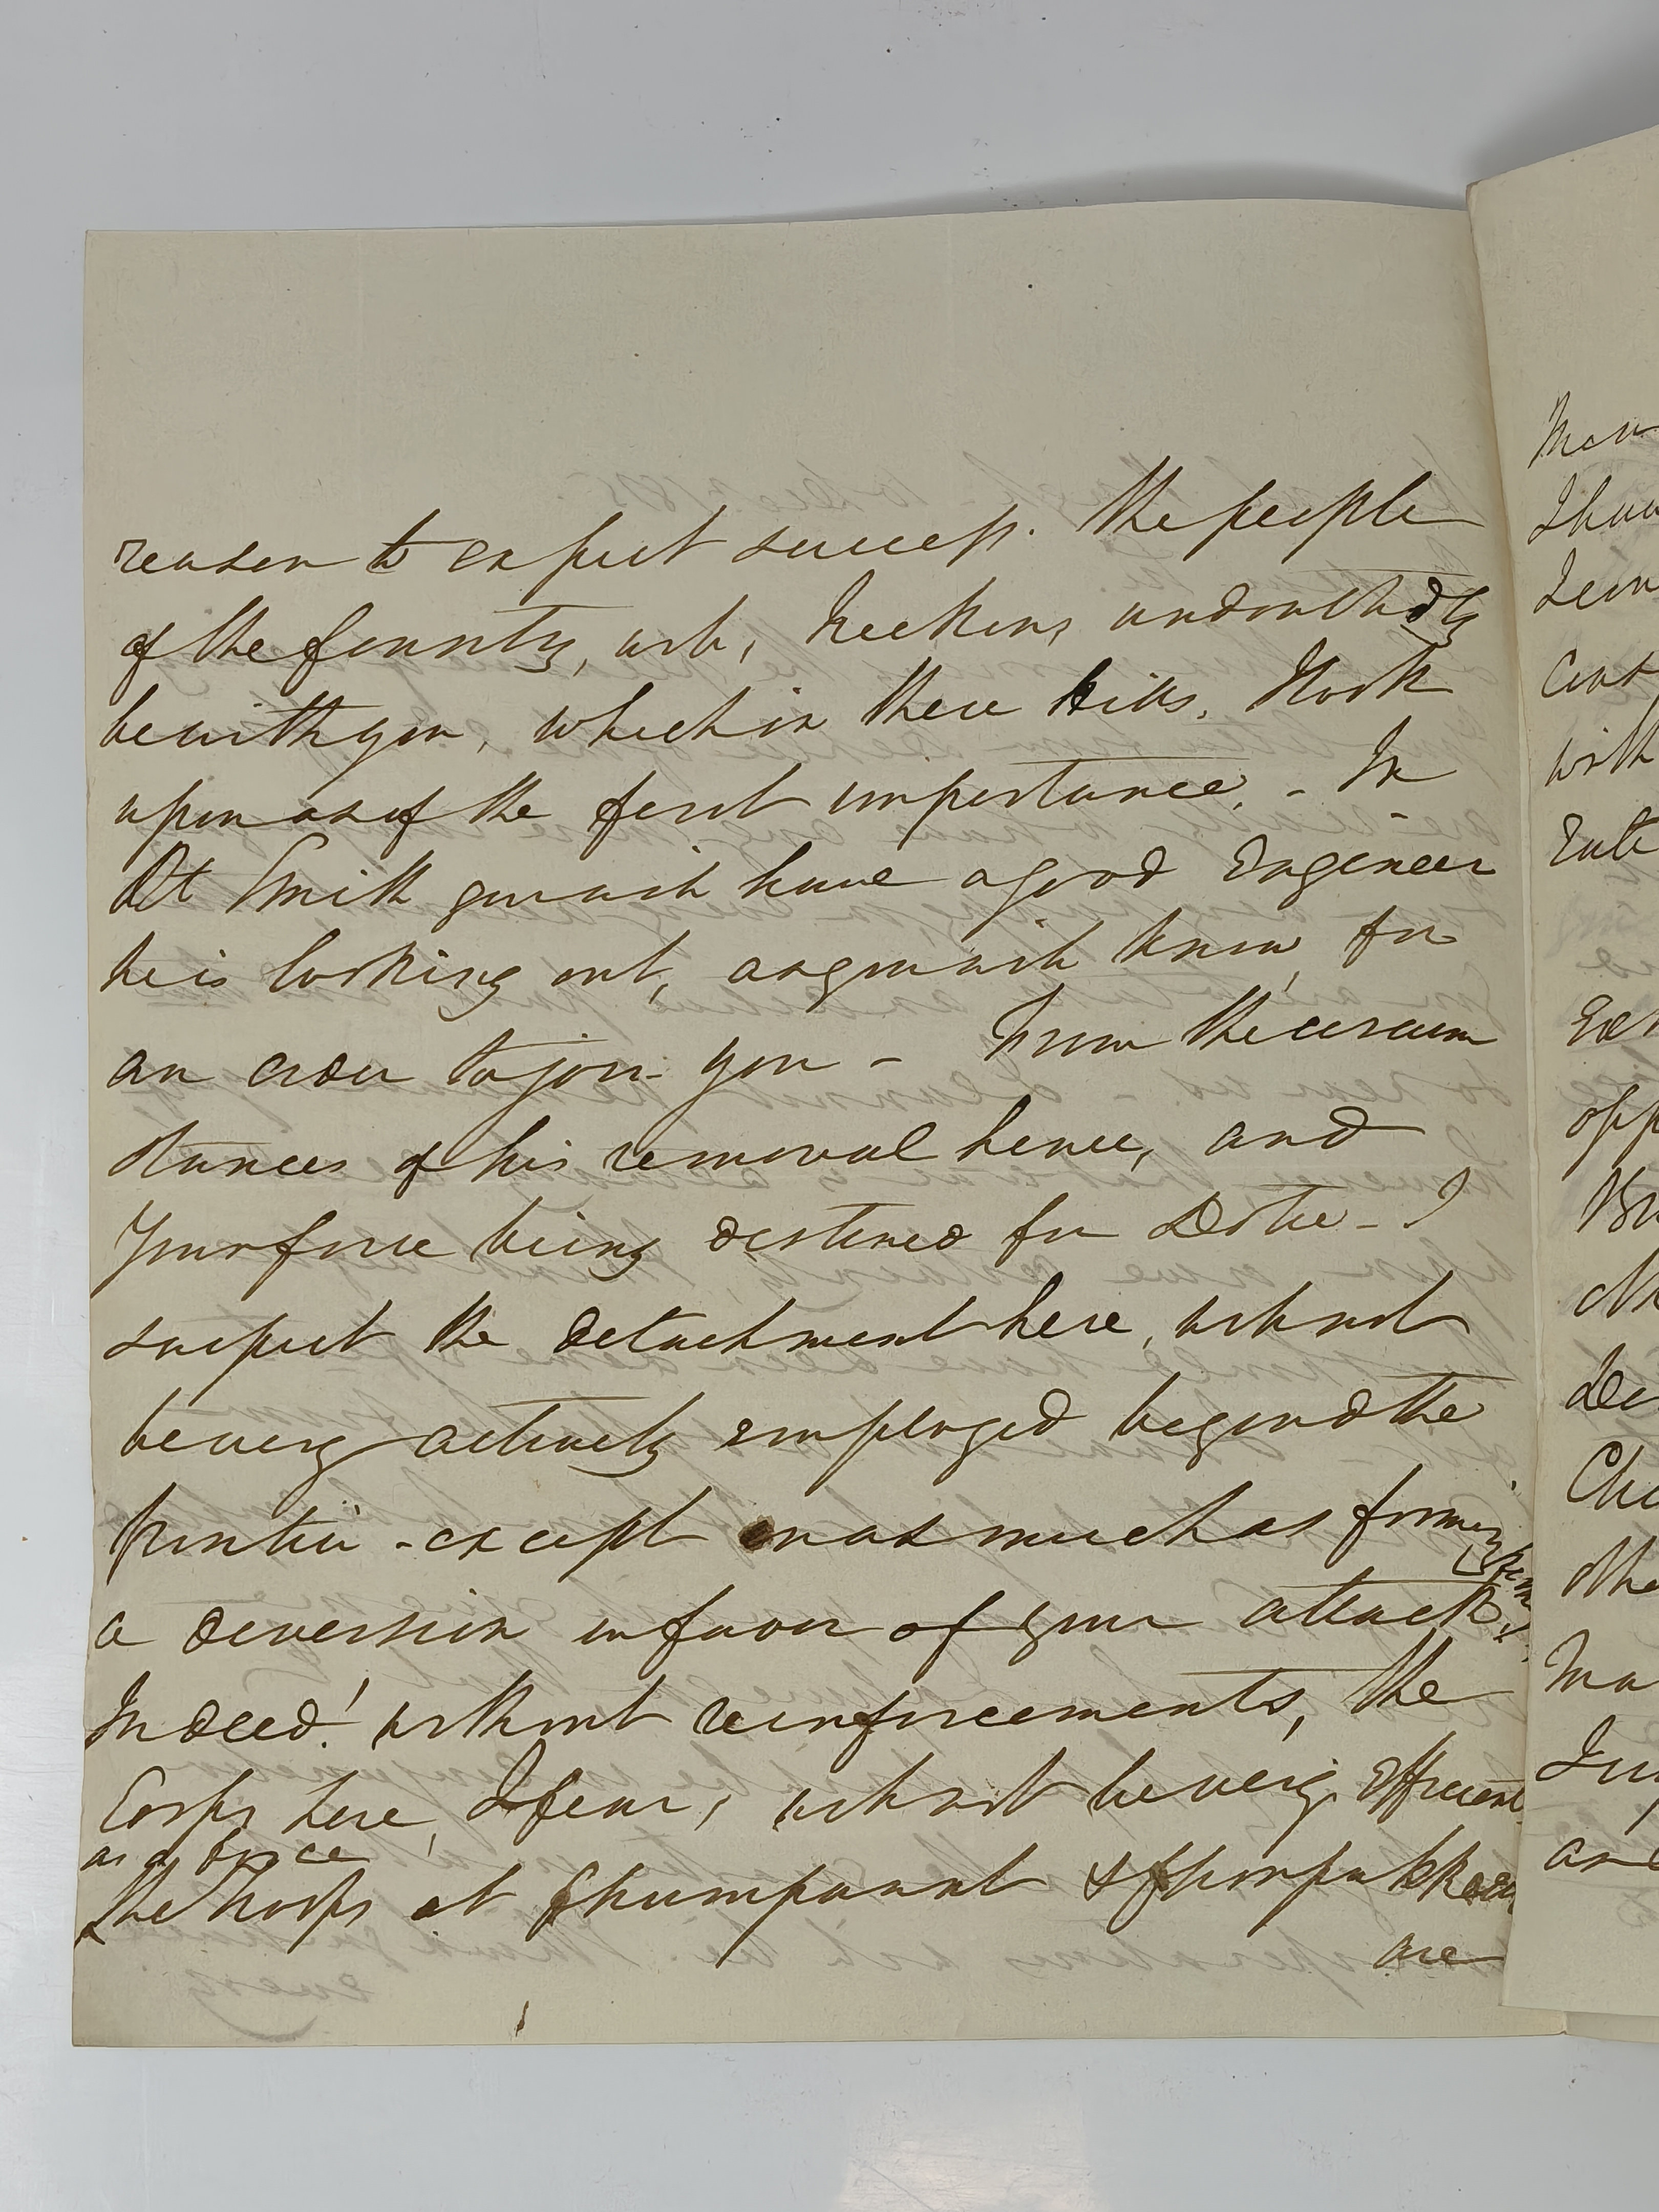 reason to expect success. The people
of the Country, will, I reckon, undoubtedly
be with you, which in these hills, I look
upon as of the first importance. - In
Lt Smith you will have a good Engineer
he is looking out, as you will know, for
an order to join you - From the circum
stances of his removal hence, and
Your force being destined for - I
suspect the detachment here, will not
be very actively employed beyond the
frontier - except in as much as forming
a diversion in favor of your attack.
Indeed! without reinforcements, the
Corps here, I fear, will not be very efficient
as a force
the troops at Chumparunt &
are
Ma
Shou
with
opp
and